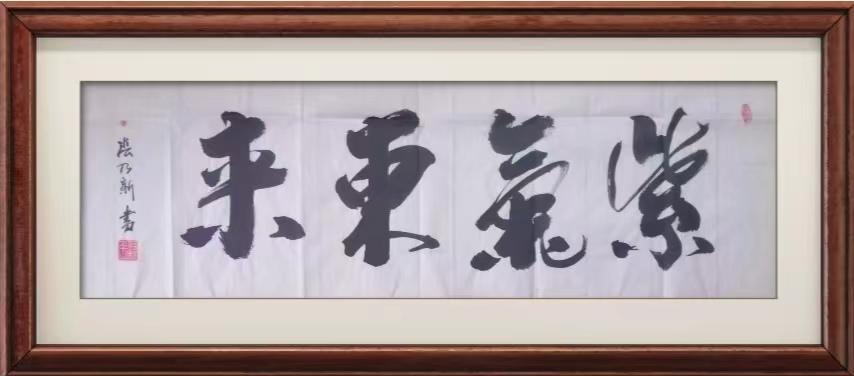 紫氣東來
張乃新書